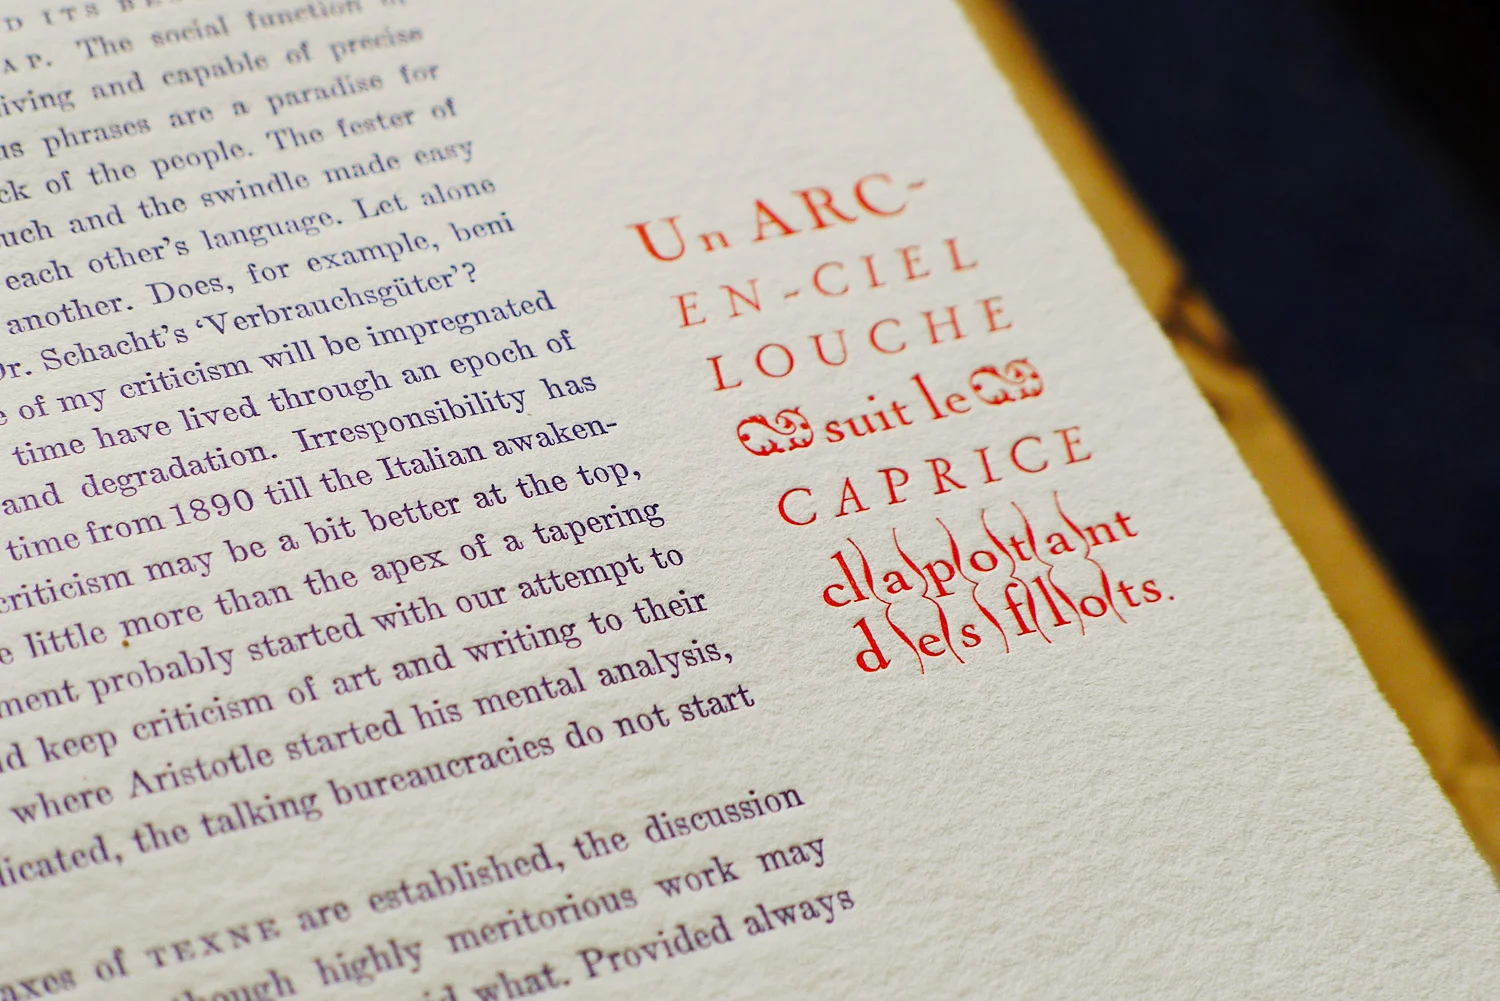 D ITS
AP. The social function
iving and capable of precise
us phrases are a paradise for
ck of the people. The fester of
uch and the swindle made easy
each other's language. Let alone
another. Does, for example, beni
Dr. Schacht's ‘Verbrauchsgüter’?
e of my criticism will be impregnated
time have lived through an epoch of
and degradation. Irresponsibility has
time from 1890 till the Italian awaken-
criticism may be a bit better at the top,
e little more than the apex of a tapering
ment probably started with our attempt to
nd keep criticism of art and writing to their
where Aristotle started his mental analysis,
licated, the talking bureaucracies do not start
axes of TEXNE are established, the discussion
though highly meritorious work may
what. Provided always
Un ARC-
EN-CIEL
LOUCHE
suit le
CAPRICE
cl)(a)p(o)t(a)nt
d)e(s)f(l)o(ts.